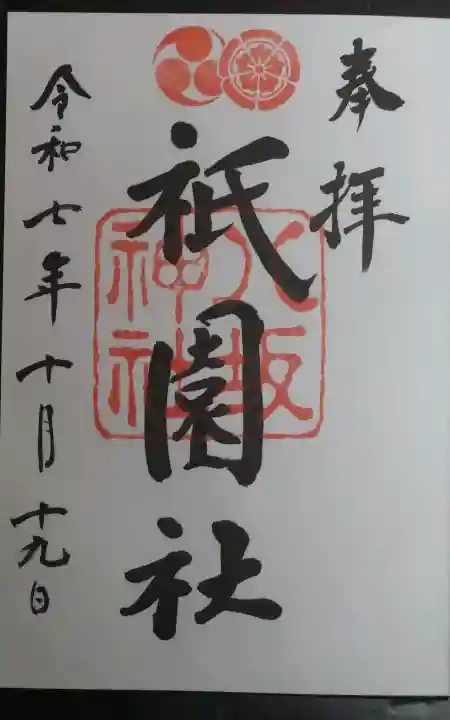 奉拝
祇園社
八坂神社
令和七年十月十九日